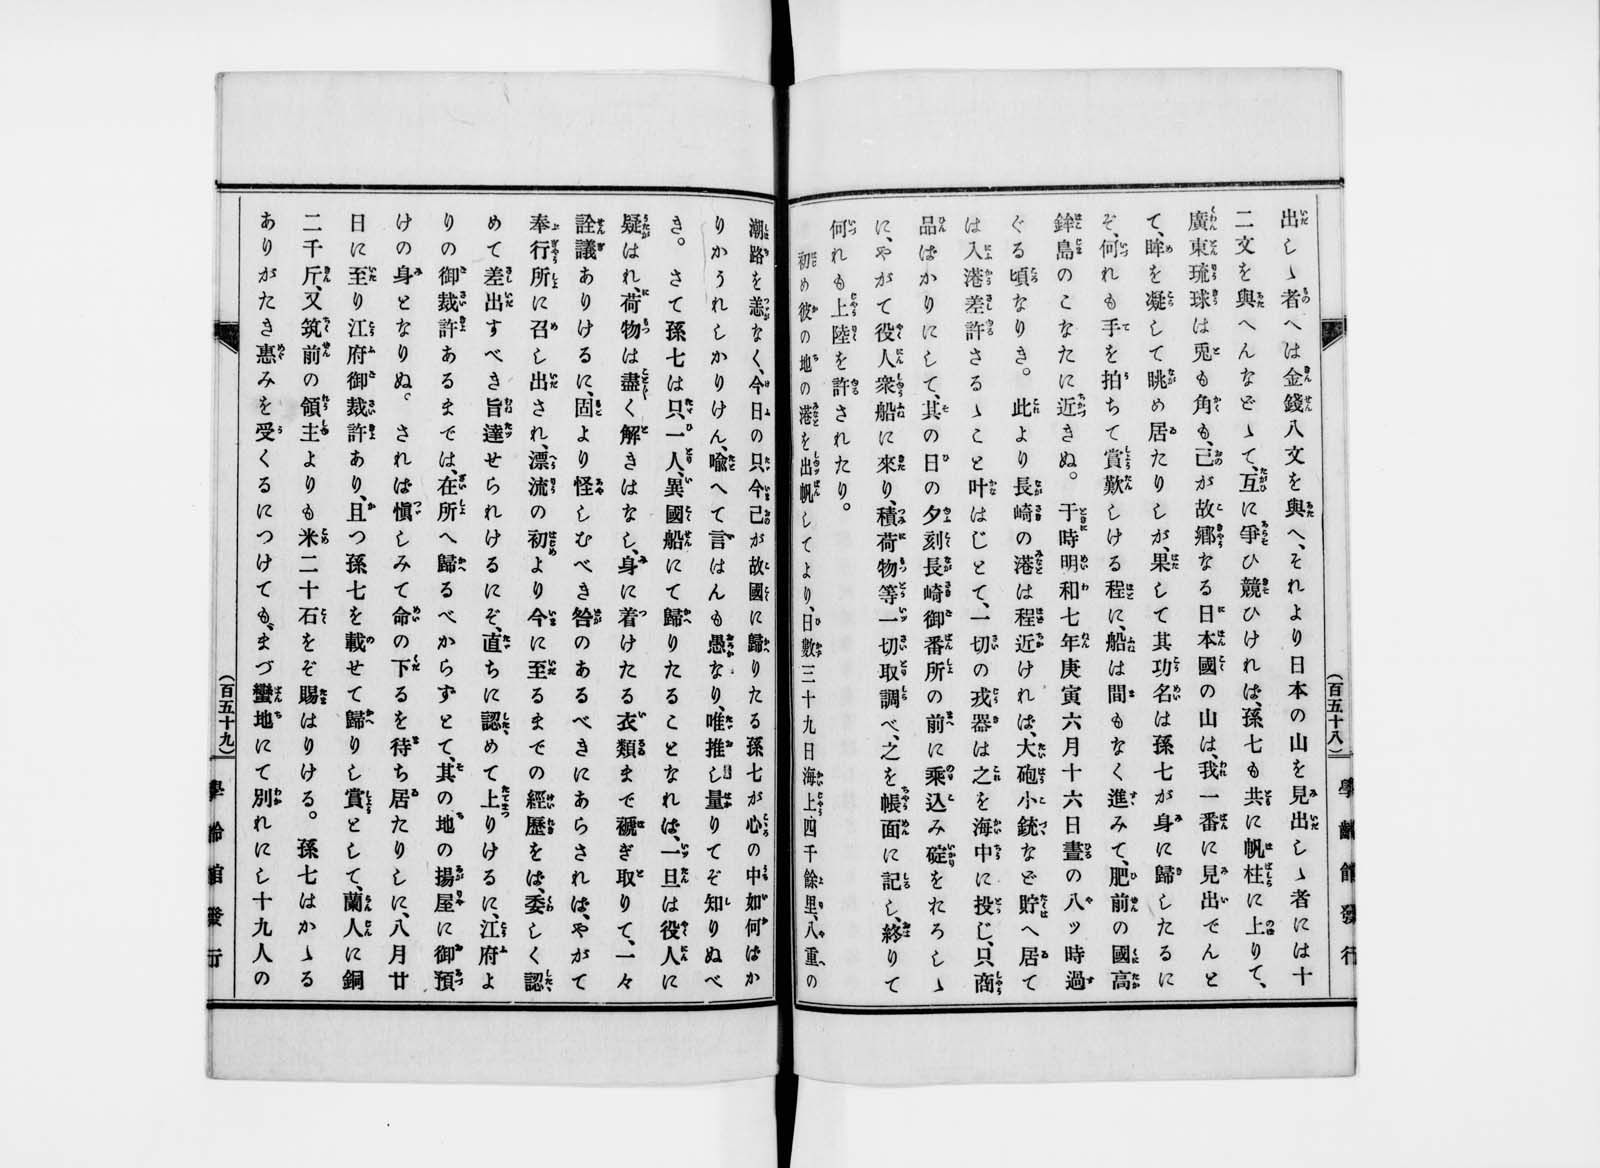 出しゝ者へは金錢八文を與へ、それより日本の山を見出しゝ者には十
二文を與へんなどゝて、互に爭ひ競ひければ、孫七も共に帆柱に上りて、
廣東琉球は兎も角も、己が故郷なる日本國の山は、我一番に見出でんと
て、眸を凝して眺め居たりしが、果して其功名は孫七が身に歸したるに
ぞ、何れも手を拍ちて賞歎しける程に、船は間もなく進みて、肥前の國高
鉾島のこなたに近きぬ。于時明和七年庚寅六月十六日晝の八ッ時過
ぐる頃なりき。此より長崎の港は程近ければ、大砲小銃など貯へ居て
は入港差許さるゝこと叶はじとて、一切の戎器は之を海中に投じ、只商
品ばかりにして、其の日の夕刻長崎御番所の前に乘込み碇をおろしゝ
に、やがて役人衆船に來り、積荷物等一切取調べ、之を帳面に記し、終りて
何れも上陸を許されたり。
初め彼の地の港を出帆してより、日數三十九日海上四千餘里、八重の
（百五十八）
學齢館發行
潮路を恙なく、今日の只今己が故國に歸りたる孫七が心の中如何ばか
りかうれしかりけん、喩へて言はんも愚なり、唯推し量りてぞ知りぬべ
き。さて孫七は只一人、異國船にて歸りたることなれば、一旦は役人に
疑はれ、荷物は盡く解きはなし、身に着けたる衣類まで褫ぎ取りて、一々
詮議ありけるに、固より怪しむべき咎のあるべきにあらされば、やがて
奉行所に召し出され、漂流の初より今に至るまでの經歴をば、委しく認
めて差出すべき旨達せられけるにぞ、直ちに認めて上りけるに、江府よ
りの御裁許あるまでは、在所へ歸るべからずとて、其の地の揚屋に御預
けの身となりぬ。されば愼しみて命の下るを待ち居たりしに、八月廿
日に至り江府御裁許あり、且つ孫七を載せて歸りし賞として、蘭人に銅
二千斤、又筑前の領主よりも米二十石をぞ賜はりける。孫七はかゝる
ありがたき惠みを受くるにつけても、まづ蠻地にて別れにし十九人の
（百五十九）
學齢館發行